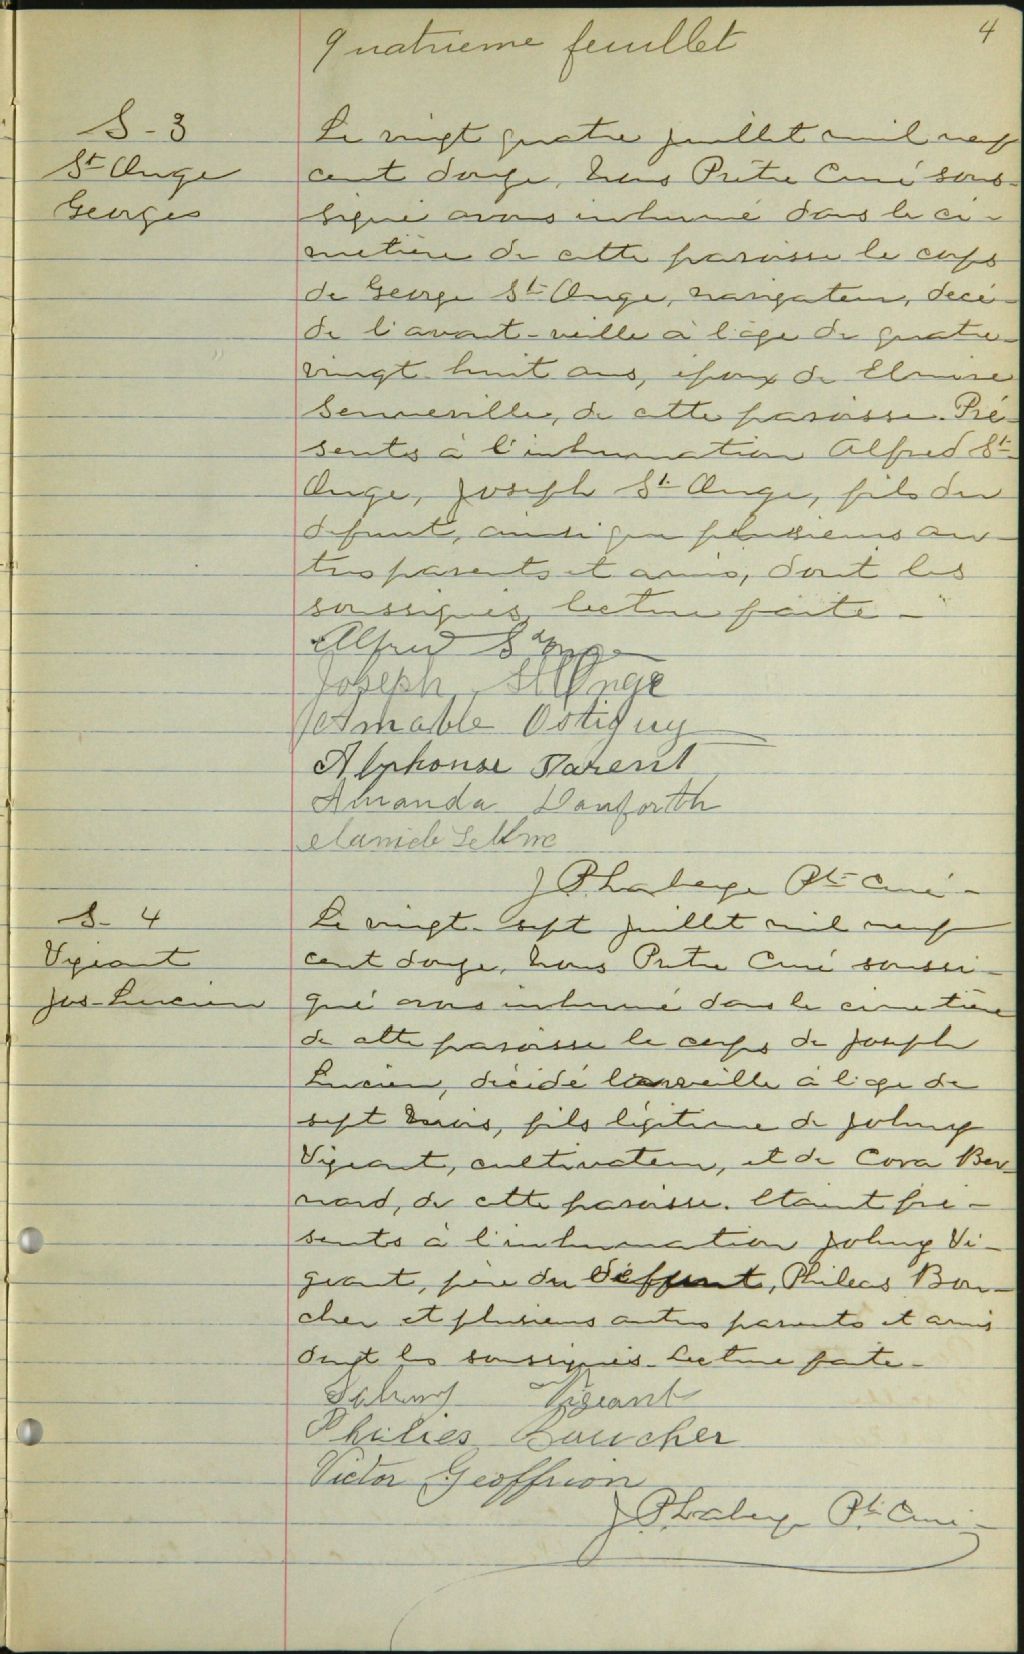 Quatrieme feuillet
4
S-3
St Onge
Georges
Le vingt quatre juillet mil neuf
cent douze, Nous Prêtre Curé sous-
signé avons inhumé dans le ci-
metière de cette paroisse le corps
de George St Onge, navigateur, decé-
dé l'avant-veille à l'âge de quatre-
vingt huit ans, époux de Elmire
Senneville, de cette paroisse. Pré-
sents à l'inhumation Alfred St-
Onge, Joseph St Onge, fils du
defunt, ainsi que plusieurs au-
tres parents et amis, dont les
soussignés, lecture faite -
Alfred St Onge
Joseph St Onge
Amable Ostiguy
Alphonse Parent
Amanda Danforth
J P Laberge Ptre Curé -
S- 4
Vigeant
Jos-Lucien
Le vingt-sept juillet mil neuf
cent douze, Nous Prêtre Curé soussi-
gné avons inhumé dans le cimetière
de cette paroisse le corps de Joseph
Lucien, décédé l'avant-veille à l'age de
sept mois, fils légitime de Johny
Vigeant, cultivateur, et de Cora Ber-
nard, de cette paroisse. Etaient pré-
sents à l'inhumation Johny Vi-
geant, père du déffunt, Phileas Bou-
cher et plusieurs autres parents et amis
dont les soussignés. Lecture faite -
Johnny Vigeant
Philies Boucher
Victor Geoffrion
J. P. Laberge Ptre Curé -